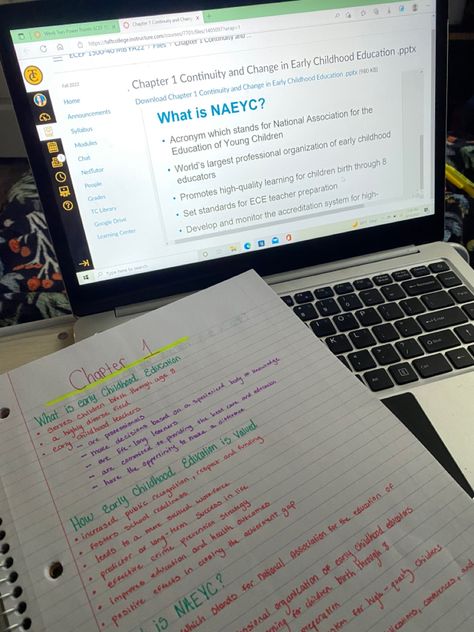 Chapter 1 Continuity and Change in Early Childhood Education .pptx
Download Chapter 1 Continuity and Change in Early Childhood Education .pptx (980 KB)
Fall 2022
Home
Announcements
Syllabus
Modules
Chat
NetTutor
People
Grades
TC Library
Google Drive
Learning Center
What is NAEYC?
• Acronym which stands for National Association for the
Education of Young Children
• World's largest professional organization of early childhood
educators
• Promotes high-quality learning for children birth through 8
• Set standards for ECE teacher preparation
• Develop and monitor the accreditation system for high-
Type here to search
Chapter 1
What is early Childhood Education
• serves children birth through age 8
• a highly diverse field
• early childhood teachers
- are professionals
- make decisions based on a specialized body of knowledge
- are life-long learners
- are committed to providing the best care and education
- have the opportunity to make a difference
How Early Childhood Education is Valued
• increased public recognition, respect and funding
• fosters school readiness
• leads to a more skilled workforce
• predictor of long-term success in life
• effective crime prevention strategy
• improves education and health outcomes
• positive effects in closing the
gap
is NAEYC?
which stands for national association for the education of
organization of early childhood educators
for children birth through 8
for high-quality